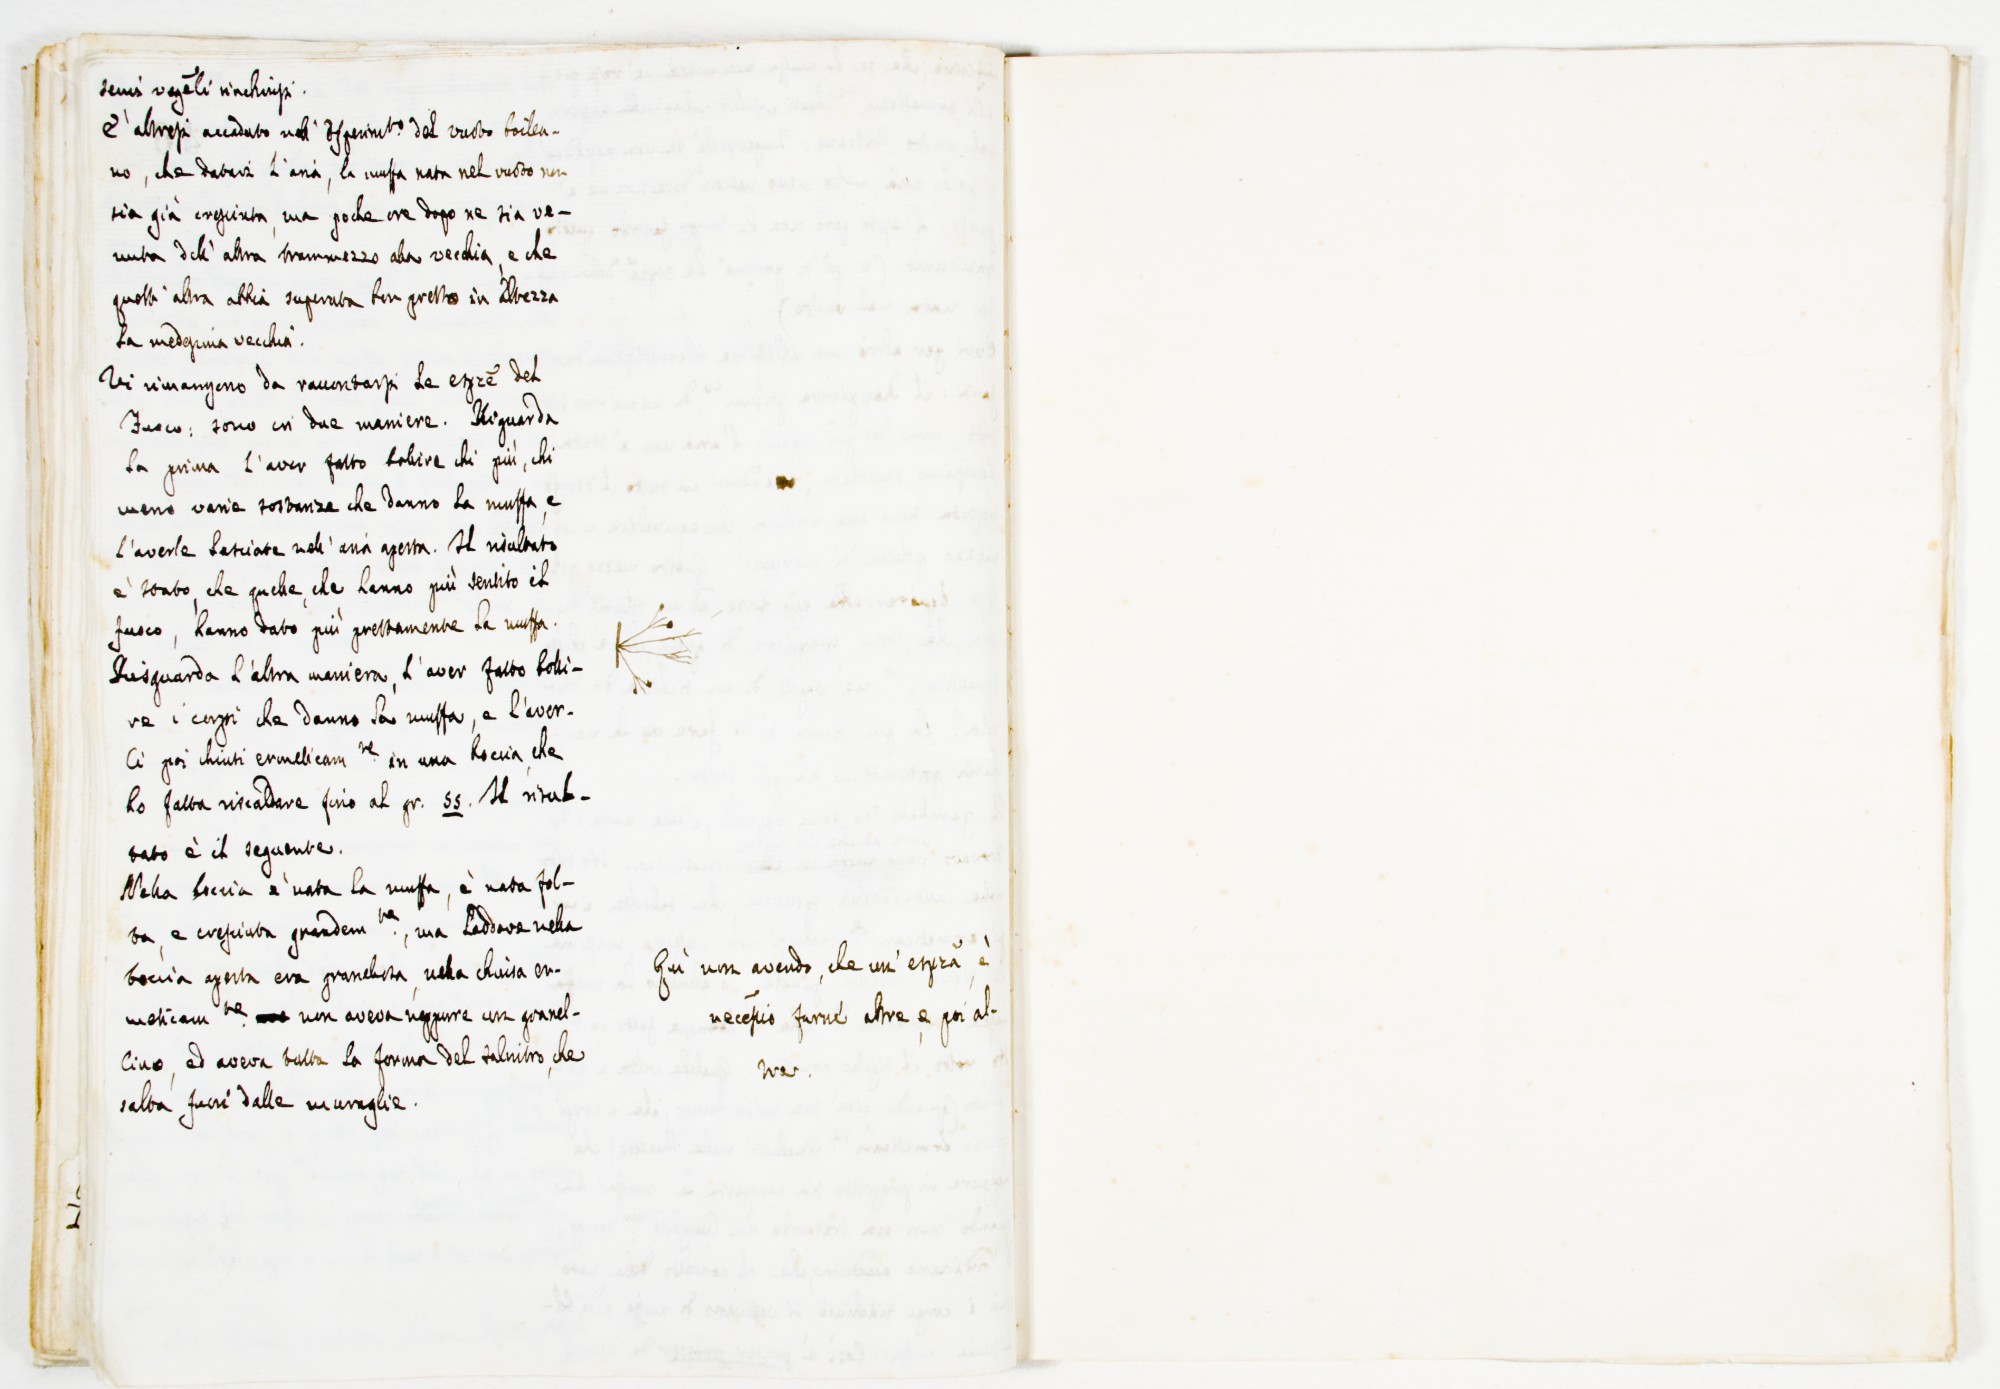 semi vegeli rinchiusi.
E' altresi accaduto nell' Esperimto. del vuoto boilea-
no, che datavi l'aria, la muffa nata nel vuoto non
sia già cresciuta, ma poche ore dopo ne sia ve-
nuta dell' altra trammezzo alla vecchia, e che
quest' altra abbia superata ben presto in altezza
la medesima vecchia.
Vi rimangono da raccontarsi le espze del
Fuoco: sono in due maniere. Risguarda
la prima l'aver fatto bollire chi più, chi
meno varie sostanze che danno la muffa, e
l'averle lasciate nell' aria aperta. Il risultato
è stato, che quelle, che hanno più sentito il
fuoco, hanno dato più prestamente la muffa.
Risguarda l'altra maniera, l'aver fatto bolli-
re i corpi che danno la muffa, e l'aver-
li poi chiusi ermeticamte. in una boccia, che
ho fatta riscaldare fino al gr. 55. Il risul-
tato è il seguente.
Nella boccia è nata la muffa, è nata fol-
ta, e cresciuta grandemte., ma laddove nella
boccia aperta era granellosa, nella chiusa er-
meticamte. non aveva neppure un granel-
lino, ed aveva tutta la forma del salnitro, che
salta fuori dalle muraglie.
Quì non avendo, che un' espza, è
necessio farne altre e poi al-
tre.